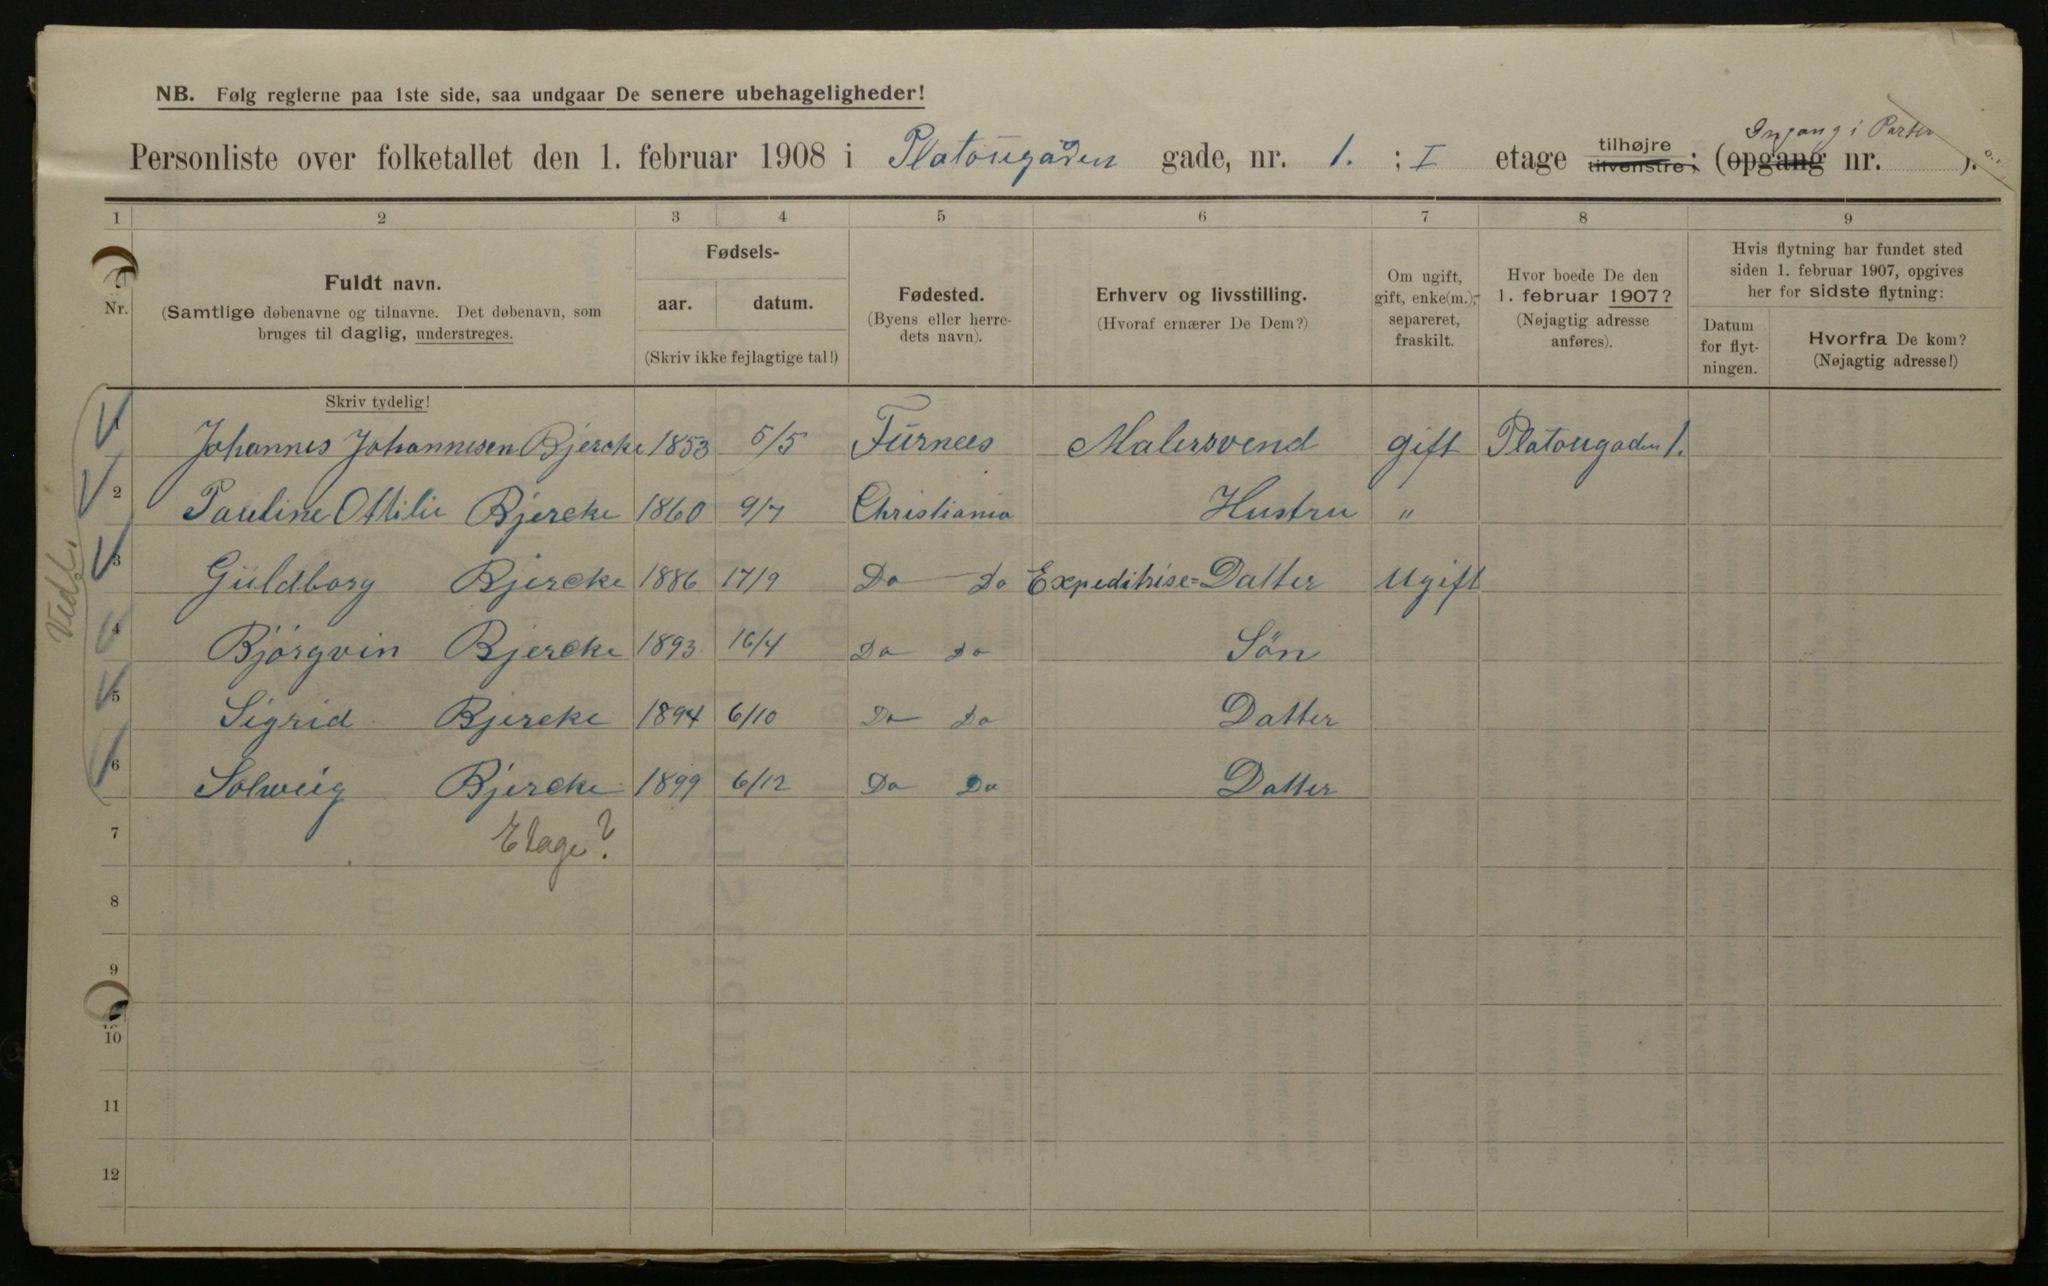 NB. Følg reglerne paa 1ste side, saa undgaar De senere ubehageligheder!
Ingang i Parter
Personliste over folketallet den 1. februar 1908 i Platougaden gade, nr. 1. ; I etage tilhøjre tilvenstre; (opgang nr. ).
1 2 3 4 5 6 7 8 9
Nr.
Fuldt navn.
(Samtlige døbenavne og tilnavne. Det døbenavn, som
bruges til daglig, understreges.
Fødsels-
aar. datum.
(Skriv ikke fejlagtige tal!)
Fødested.
(Byens eller herre-
dets navn).
Erhverv og livsstilling.
(Hvoraf ernærer De Dem?)
Om ugift,
gift, enke(m.),
separeret,
fraskilt.
Hvor boede De den
1. februar 1907?
(Nøjagtig adresse
anføres).
Hvis flytning har fundet sted
siden 1. februar 1907, opgives
her for sidste flytning:
Datum
for flyt-
ningen.
Hvorfra De kom?
(Nøjagtig adresse!)
Skriv tydelig!
1 Johannes Johannesen Bjercke 1853 5/5 Furnees Malersvend gift Platougaden 1.
2 Pauline Ottilie Bjercke 1860 9/7 Christiania Hustru "
3 Guldborg Bjercke 1886 17/9 Do Do Expeditrise=Datter Ugift
4 Bjørgvin Bjercke 1893 16/4 Do Do Søn
5 Sigrid Bjercke 1894 6/10 Do Do Datter
6 Solveig Bjercke 1899 6/12 Do Do Datter
7 Etage?
8
9
10
11
12